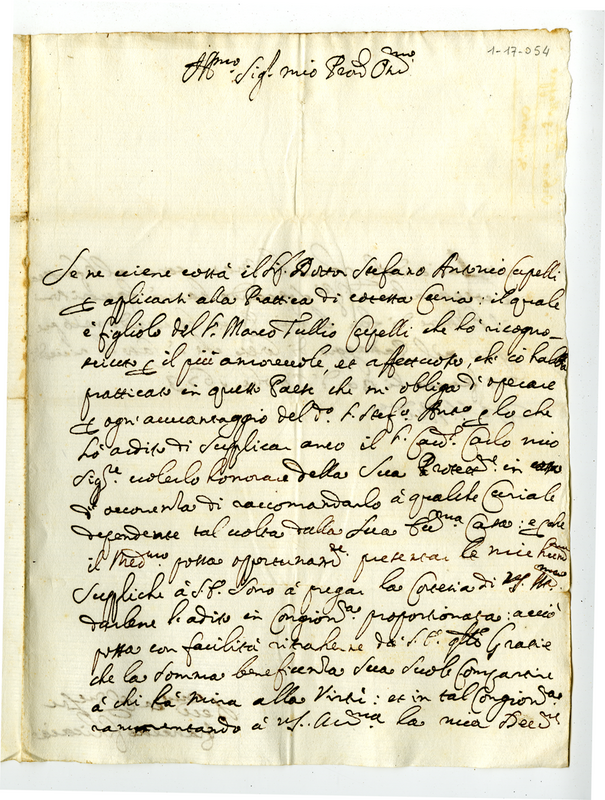 1-17-054
Sig.r mio
Se ne viene costà il Sig.r Dottor Stefano Antonio Capelli
applicarsi alla Prattica di cotesta Curia: il quale
è figliolo del S. Marco Tullio Capelli che hò ricogno-
sciuto il più amorevole, et affettuoso, ch'io habbia
pratticato in questo Paese che mi obliga d'operare
ogni avvantaggio del d.o S. Stef.o Ant.o lo che
hò ardito di supplicar anco il S. Card.e Carlo mio
Sig.re volerlo honorare della Sua Protett.ne in
d'occorrenza di raccomandarlo à qualche Curiale
dependente tal volta dalla Sua Casa:
il Med.mo possa opportunam.te presentar le mie
Suppliche à S. E. Sono à pregar la Cortesia di
darlene l'adito in Congion.ra proportionata: acciò
possa con facilità ritrahere da S. E. q.lle Gratie
che la Somma beneficenza Sua suole Compartire
à chi hà mira alla Virtù: et in tal Congion.ra
rammentando à la mia